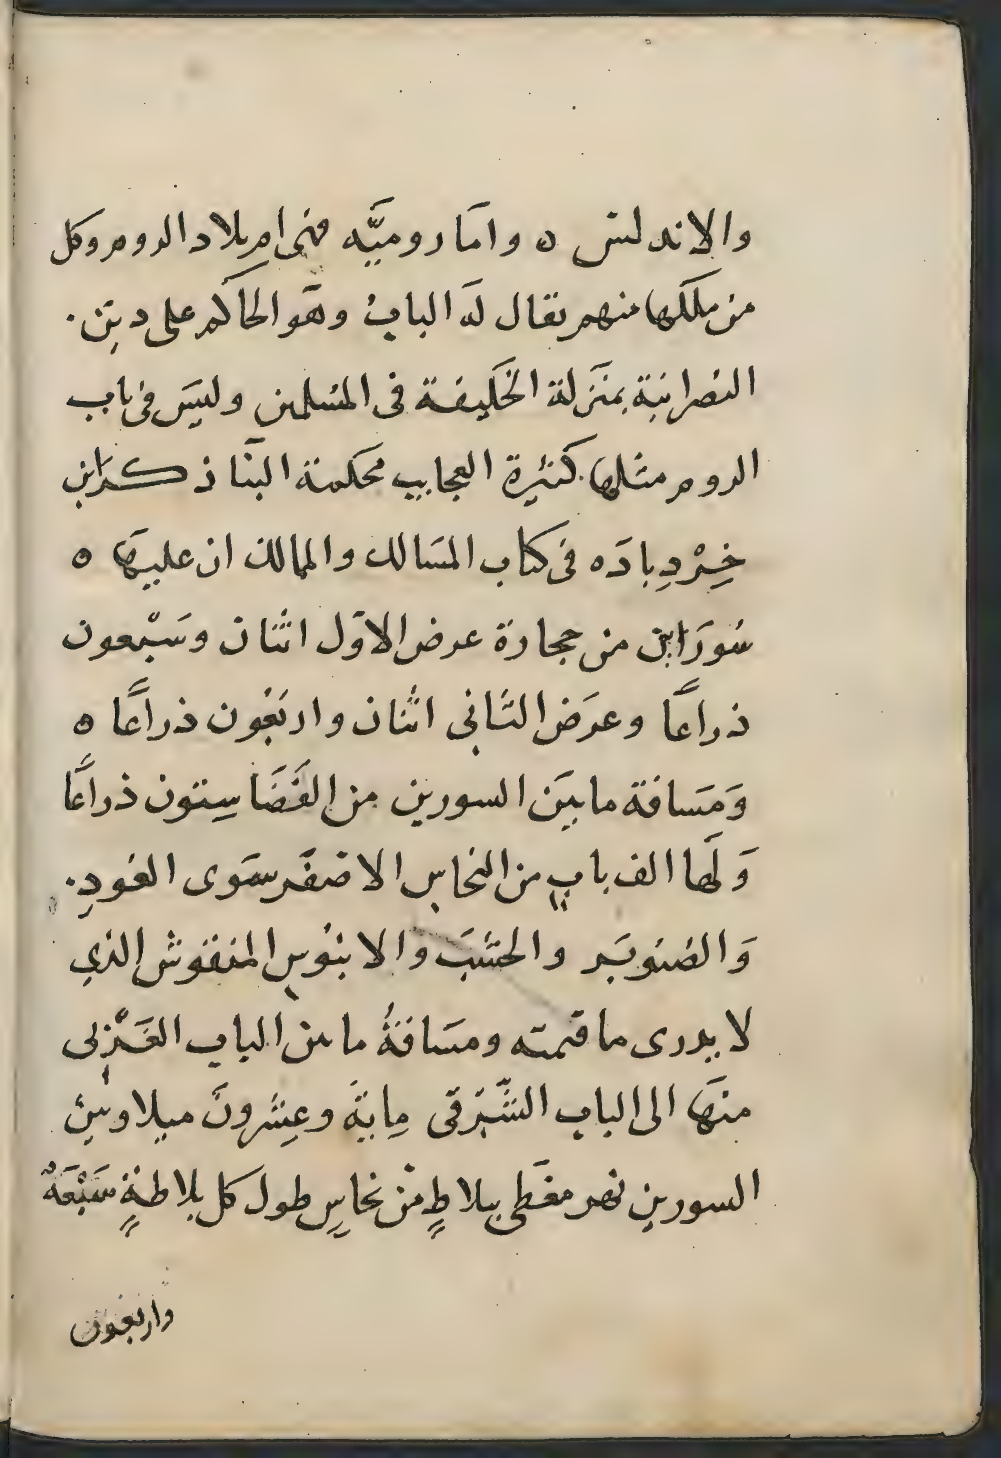 والاندلس ه واما روميَّه فهى ام بلاد الروم وكل
من ملكها منهم يقال له الباب وهو الحاكم على دين
النصرانية بمنزلة الخليفة فى المسلمين وليس فى باب
الروم مثلها كثيرة العجايب محكمة البنا ذكر ابن
خِرْدِبادَه فى كتاب المسالك والممالك ان عليها ه
سُورَاين من حجارة عرض الاول اثنان وسَبْعون
ذراعًا وعرَض الثانى اثنان واربعون ذراعًا ه
وَمَسافة ما بين السورين من الفَضَا سِتون ذراعًا
وَلَها الف باب من النحاس الاصفر سوَى العودِ
وَالصنوبَر والخشبَ والابنوس المنقوش الذى
لا يدرى ما قيمته ومسَافةُ ما بين الباب الغَرْبى
منهَا الى الباب الشَّرقى مِايةَ وعِشرونَ ميلا وبين
السورين نهر مغطى ببلاطٍ من نحاسِ طول كل بلاطةٍ سَبْعَةُ
واربعون